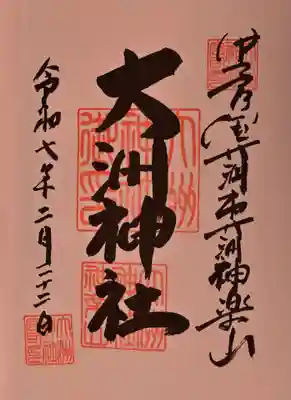 伊予国大洲市大洲神楽山
大洲神社
令和七年二月二十二日